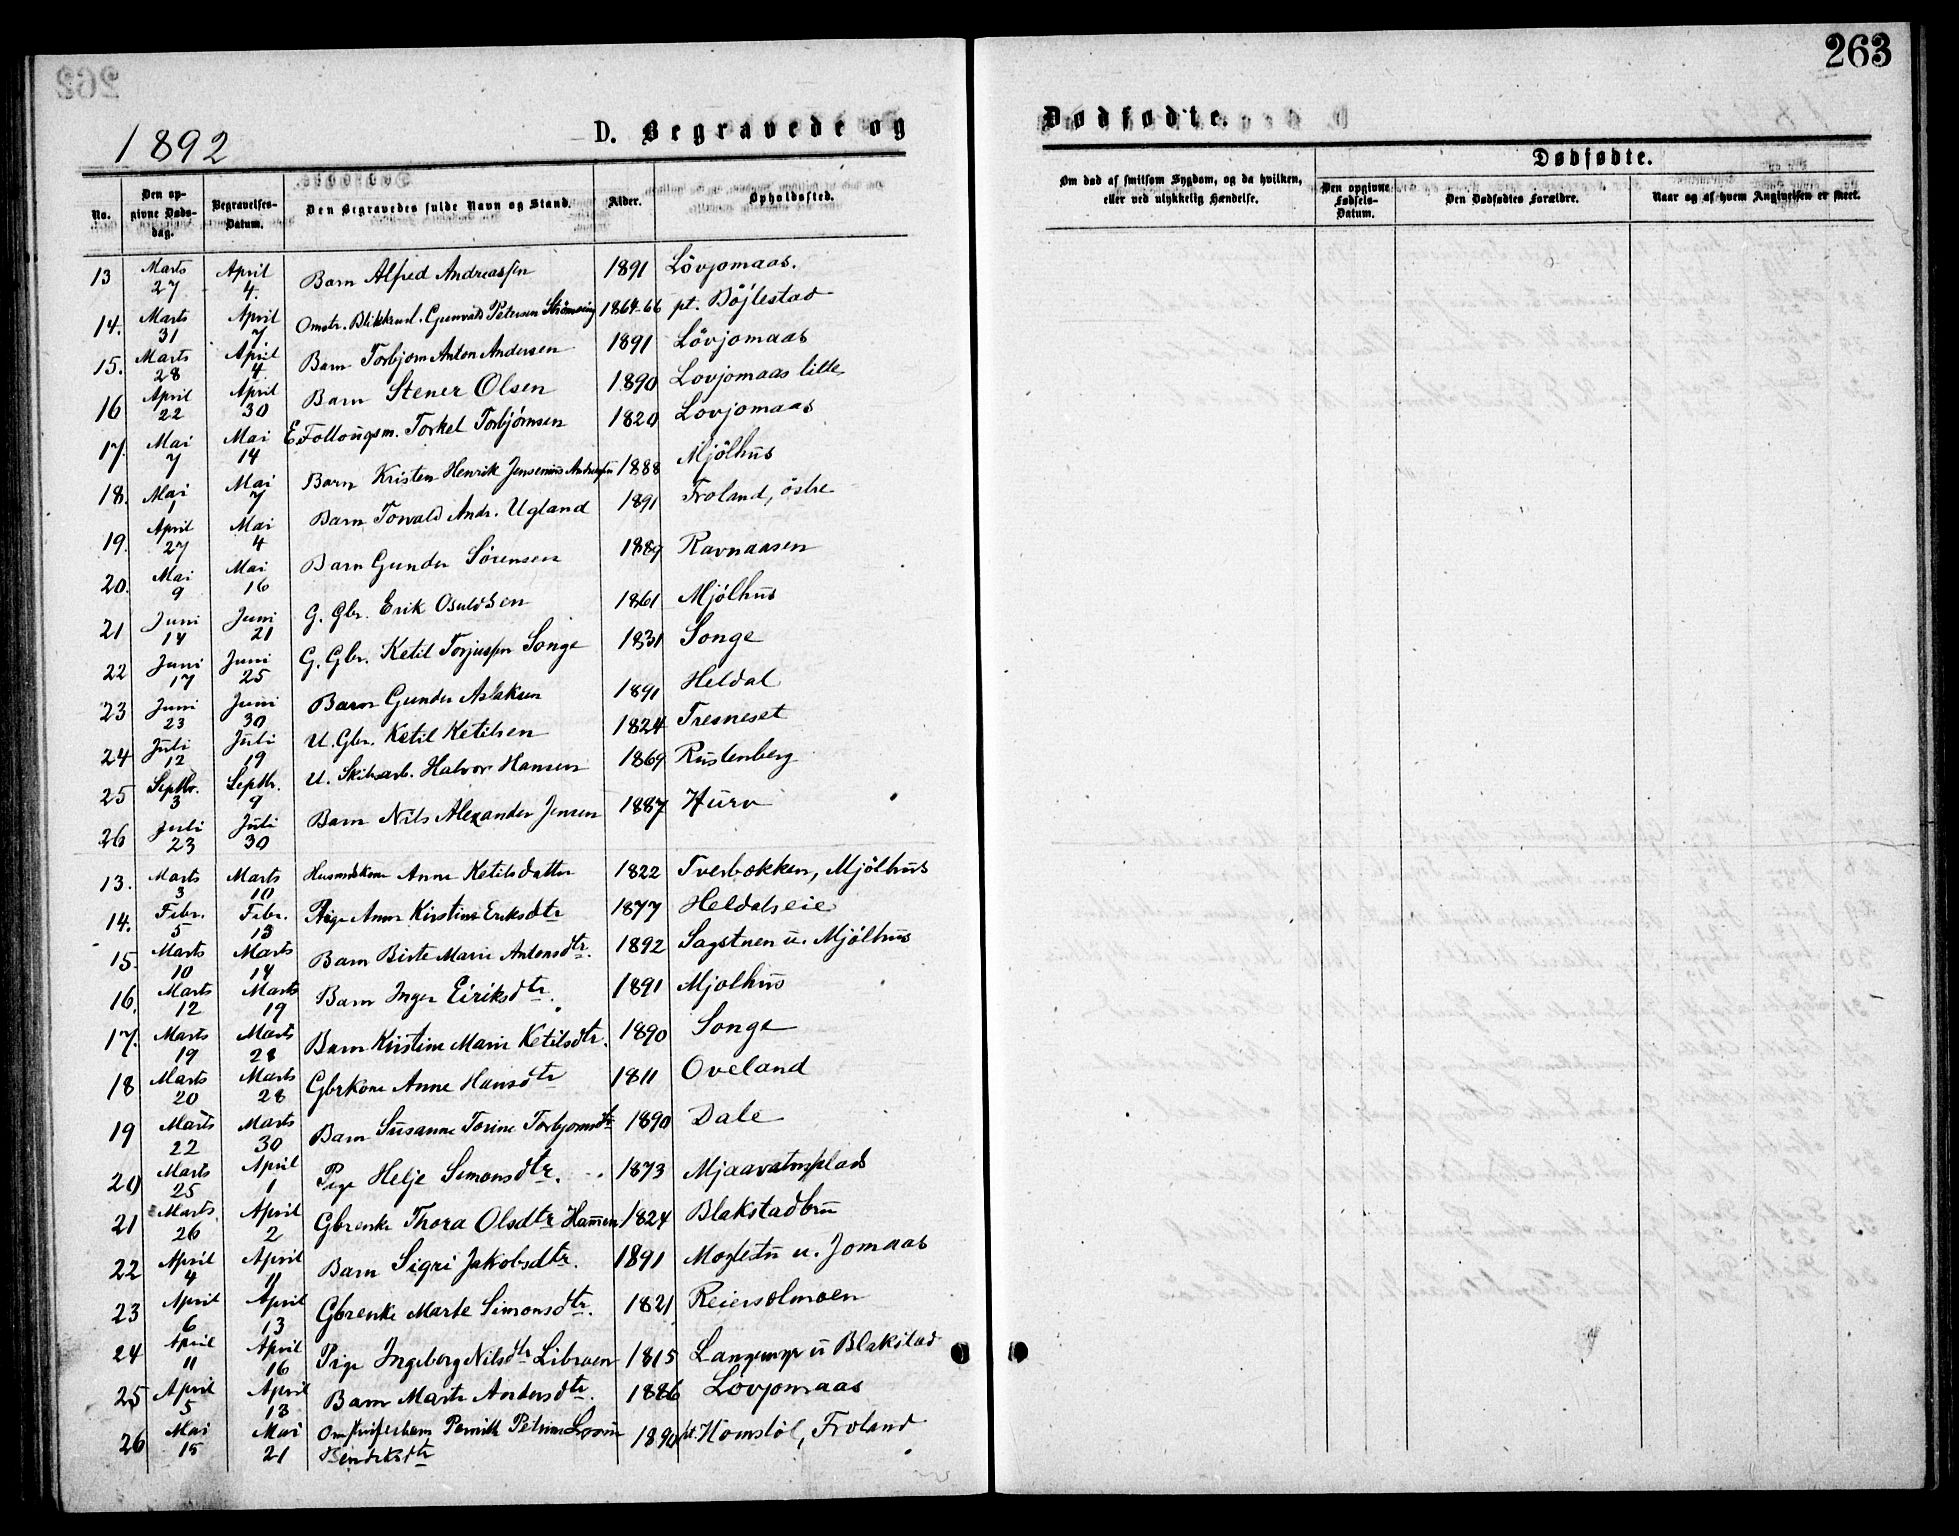 263
1892
D. Begravede og
Dødfødte.
No.
Den opgivne Dødsdag.
Begravelses-Datum.
Den Begravedes fulde Navn og Stand.
Alder.
Opholdssted.
Om død af smitsom Sygdom, og da hvilken, eller ved ulykkelig Hændelse.
Dødfødte.
Den opgivne Fødsels-Datum.
Den Dødfødtes Forældre.
Naar og af hvem Angivelsen er skeet.
13 Marts 27 April 4. Barn Alfred Andreassen 1891 Lövjomaas.
14. Marts 31 April 7 Omstr. Blikkensl. Gunvald Petersen 1864-66 pt. Böjlestad
15. Marts 28 April 4 Barn Torbjorn Anton Andersen 1891 Lövjomaas
16 April 22 April 30 Barn Stener Olsen 1890 Lovjomaas lille
17. Mai 7 Mai 14 E. Follougsm. Torkel Torbjørnsen 1820 Lovjomaas
18. Mai 1 Mai 7 Barn Kristen Henrik Jensenius Andreassen 1888 Mjölhus
19. April 27 Mai 4 Barn Torvald Andr. Ugland 1891 Froland, östre
20. Mai 9 Mai 16 Barn Gunder Sörensen 1889 Ravnaasen
21 Juni 14 Juni 21 G. Gbr. Erik Osuldsen 1861 Mjölhus
22 Juni 17 Juni 25 G. Gbr. Ketil Torjussen Songe 1831 Songe
23 Juni 23 Juni 30 Barn Gunder Aslaksen 1891 Heldal
24 Juli 12 Juli 19 U. Gbr. Ketil Ketilsen 1824 Tresneset
25 Septbr. 3 Septbr. 9 U. Skibsarb. Halvor Hansen 1869 Rustenberg
26 Juli 23 Juli 30 Barn Nils Alexander Jensen 1887 Hurv
13. Marts 3 Marts 10 Husmdskone Anne Ketilsdatter 1822 Tverbokken, Mjölhus
14. Febr. 5 Febr. 13 Pige Anne Kirstine Eriksdtr 1877 Heldalseie
15. Marts 10 Marts 14 Barn Birte Marie Antonsdtr. 1892 Sagstuen u. Mjölhus
16. Marts 12 Marts 19 Barn Inger Eiriksdtr. 1891 Mjolhus
17. Marts 19 Marts 28 Barn Kirstine Marie Ketilsdtr. 1890 Songe
18 Marts 20 Marts 28 Gbrkone Anne Hansdtr 1811 Oveland
19 Marts 22 Marts 30 Barn Susanne Torine Torbjornsdtr 1890 Dale
20 Marts 25 April 1 Pige Helje Simonsdtr. 1873 Mjaavatnsplads
21 Marts 26 April 2 Gbrenke Thora Olsdtr Hansen 1824 Blakstadbru
22 April 4 April 11 Barn Sigri Jakobsdtr. 1891 u. Jomaas
23 April 6 April 13 Gbrenke Marte Simonsdtr. 1821 Reiersolmoen
24 April 11 April 16 Pige Ingeborg Nilsdtr Libroen 1815 u Blakstad
25 April 5 April 13 Barn Marte Andersdtr. 1886 Lovjomaas
26 Mai 15 Mai 21 Pernille Petrine 1890 pt. Homstöl, Froland
Bendiksdtr